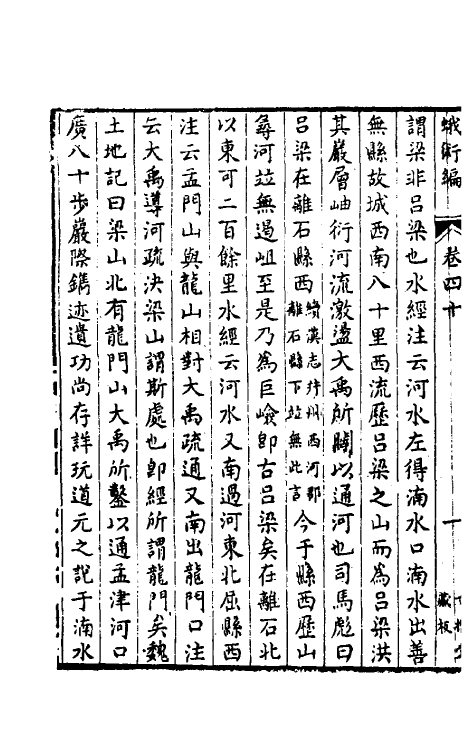 蛾術編
卷四十
藏板
謂梁非呂梁也水經注云河水左得湳水口湳水出善
無縣故城西南八十里西流歷呂梁之山而為呂梁洪
其巖層岫衍河流激盪大禹所闢以通河也司馬彪曰
呂梁在離石縣西續漢志幷州西河郡離石縣下竝無此言今于縣西歷山
尋河竝無過岨至是乃為巨嶮卽古呂梁矣在離石北
以東可二百餘里水經云河水又南過河東北屈縣西
注云孟門山與龍山相對大禹疏通又南出龍門口注
云大禹導河疏決梁山謂斯處也卽經所謂龍門矣魏
土地記曰梁山北有龍門山大禹所鑿以通孟津河口
廣八十步巖際鐫迹遺功尚存詳玩道元之說于湳水